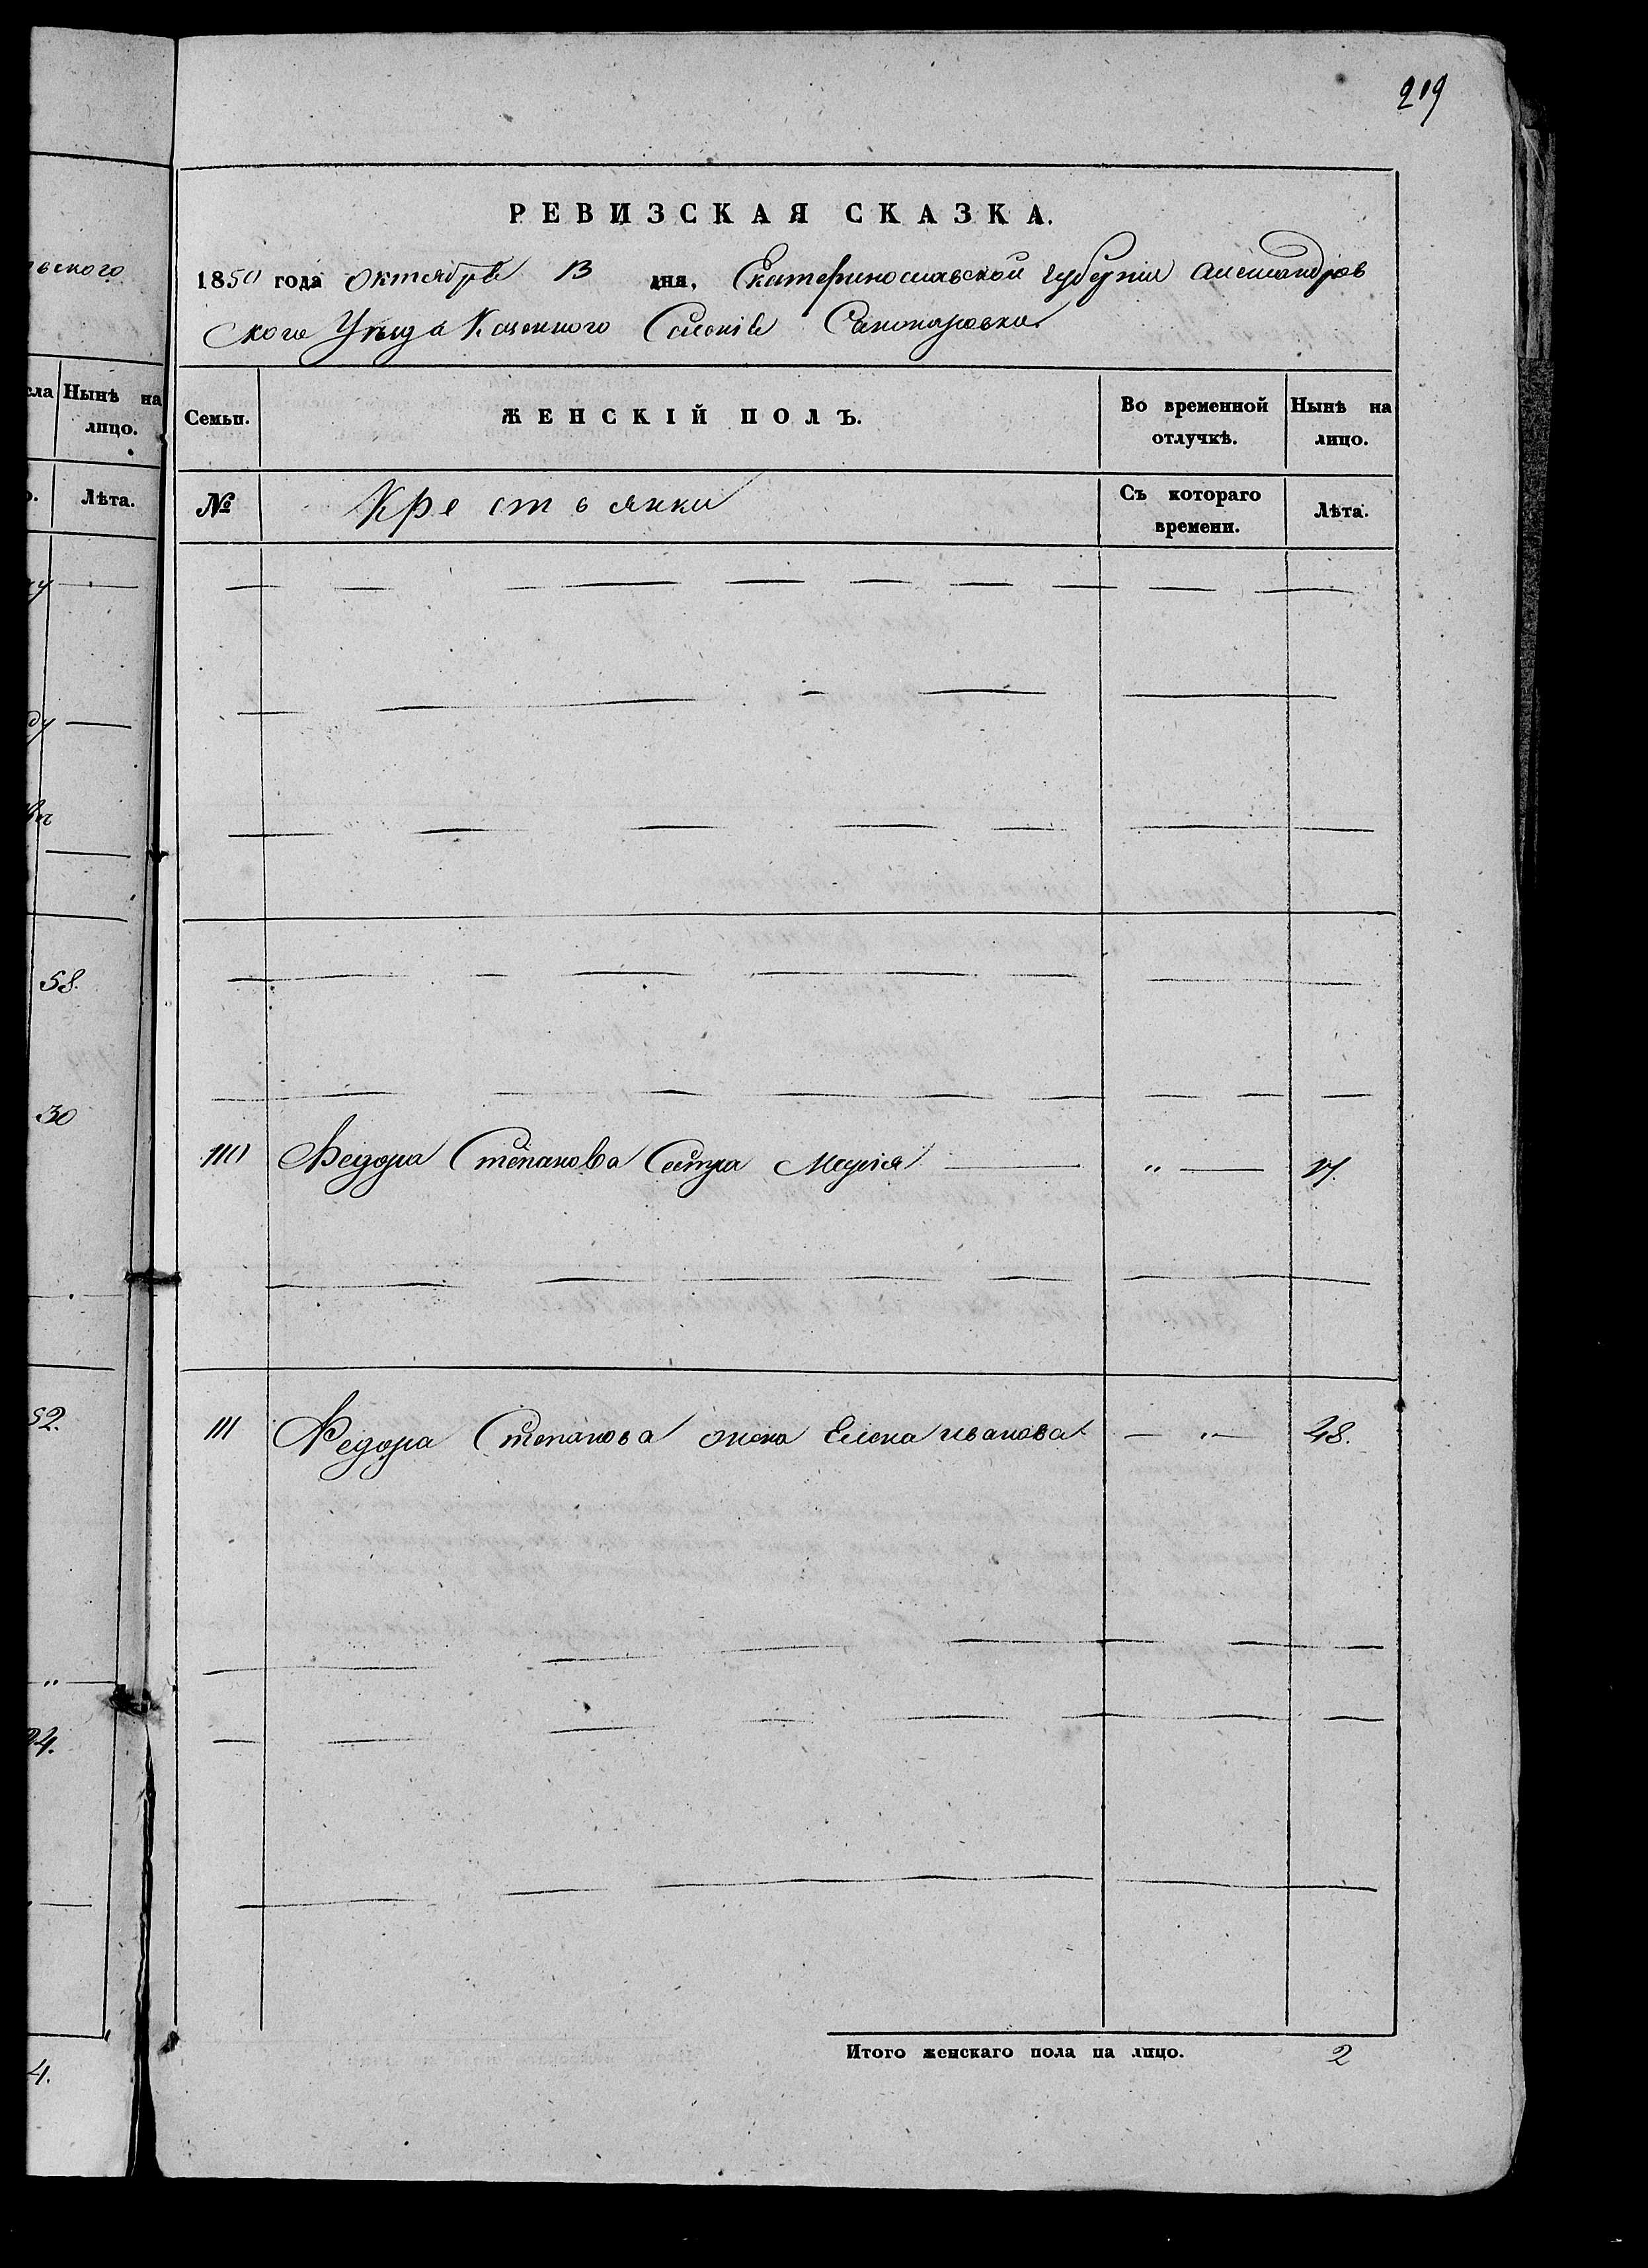 219
РЕВИЗСКАЯ СКАЗКА.
1850 года Октября 13 дня, Екатеринославской Губернии Александров
ского Уезда Казенного Селенія
Семьи.
ЖЕНСКІЙ ПОЛЪ.
Во временной отлучкѣ.
Нынѣ на лицо.
№
Крестьянки
Съ котораго времени.
Лѣта.
110 Федора Степанова Сестра Марія „
111 Федора Степанова жена Елена иванова „ 48.
Итого женскаго пола на лицо. 2
ьского
сла
Нынѣ на лицо.
Лѣта.
58.
30
52.
„
24.
4.